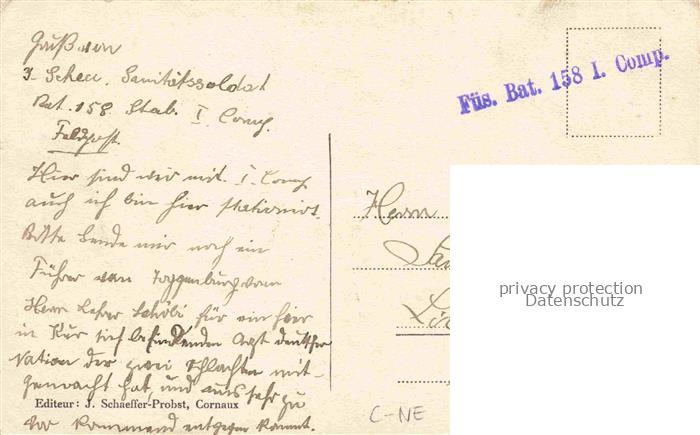 Gruß von
J. Scheu, Sanitätssoldat
Bat. 158 Stab. I Comp.
Feldpost.
Hier sind wir mit I. Comp
auch ich bin hier stationirt.
Bitte sende mir noch ein
Führer von Toggenburg vom
Herr Lehrer für ein hier
in Kur sich befindenden Arzt deutscher
Nation der zwei Schlachten mit-
gemacht hat, und uns sehr zu
vor kommend entgegen kommt.
Editeur: J. Schaeffer-Probst, Cornaux
Füs. Bat. 158 I. Comp.
Herrn
privacy protection
Datenschutz
C-NE